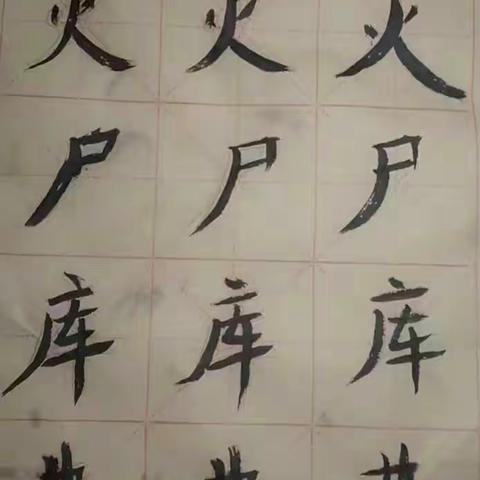 火 火 火
尸 尸 尸
库 库 库